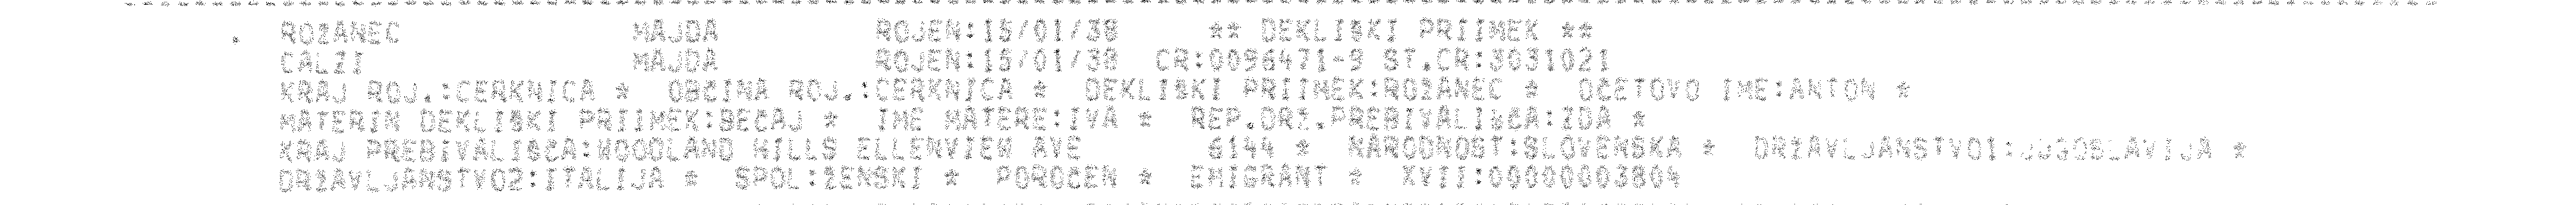 ROŽANEC MAJDA ROJEN:15/01/38 ** DEKLIŠKI PRIIMEK **
CALZI MAJDA ROJEN:15/01/38 CR:0096471-9 ST.CR:3631021
KRAJ ROJ.:CERKNICA * OBČINA ROJ.:CERKNICA * DEKLIŠKI PRIIMEK:ROŽANEC * OČETOVO IME:ANTON *
MATERIN DEKLIŠKI PRIIMEK:BEČAJ * IME MATERE:IVA * REP.DRŽ.PREBIVALIŠČA:ZDA *
KRAJ PREBIVALIŠČA:WOODLAND HILLS ELLENVIEW AVE 6144 * NARODNOST:SLOVENSKA * DRŽAVLJANSTVO1:JUGOSLAVIJA *
DRŽAVLJANSTVO2:ITALIJA * SPOL:ŽENSKI * POROČEN * EMIGRANT * XVII:0000003804